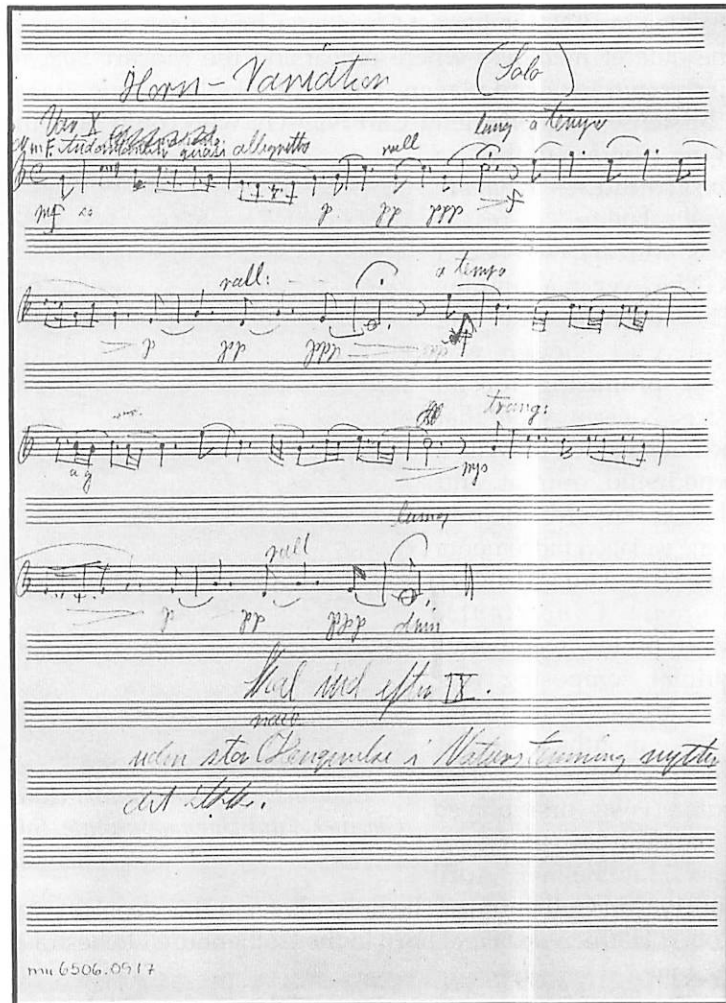 Horn-Variation (Solo)
Var X
in F. Andantino quasi allegretto rall lung a tempo
mf p pp ppp f
rall: a tempo
p pp ppp f
trang:
a g mf
rall lung
p pp ppp dim
Skal ind efter IX.
naiv
uden stor Hengivelse i Naturstemning nytter
det ikke.
mu 6506.0917